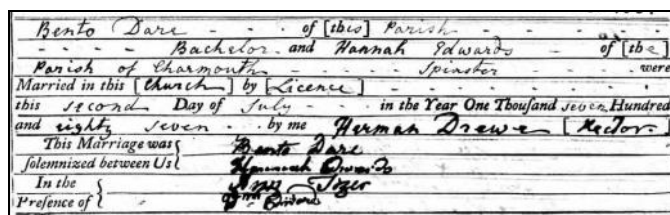 Bento Dare - - - of [this] Parish
- - - - Bachelor - and Hannah Edwards - of [the]
Parish of Charmouth - - - - Spinster - - - were
Married in this [Church] by [Licence] - - - -
this second Day of July - - - in the Year One Thousand seven Hundred
and eighty seven - - by me Herman Drewe [Rector
This Marriage was { Bento Dare
solemnized between Us { Hannah Edwards
In the {
Presence of {